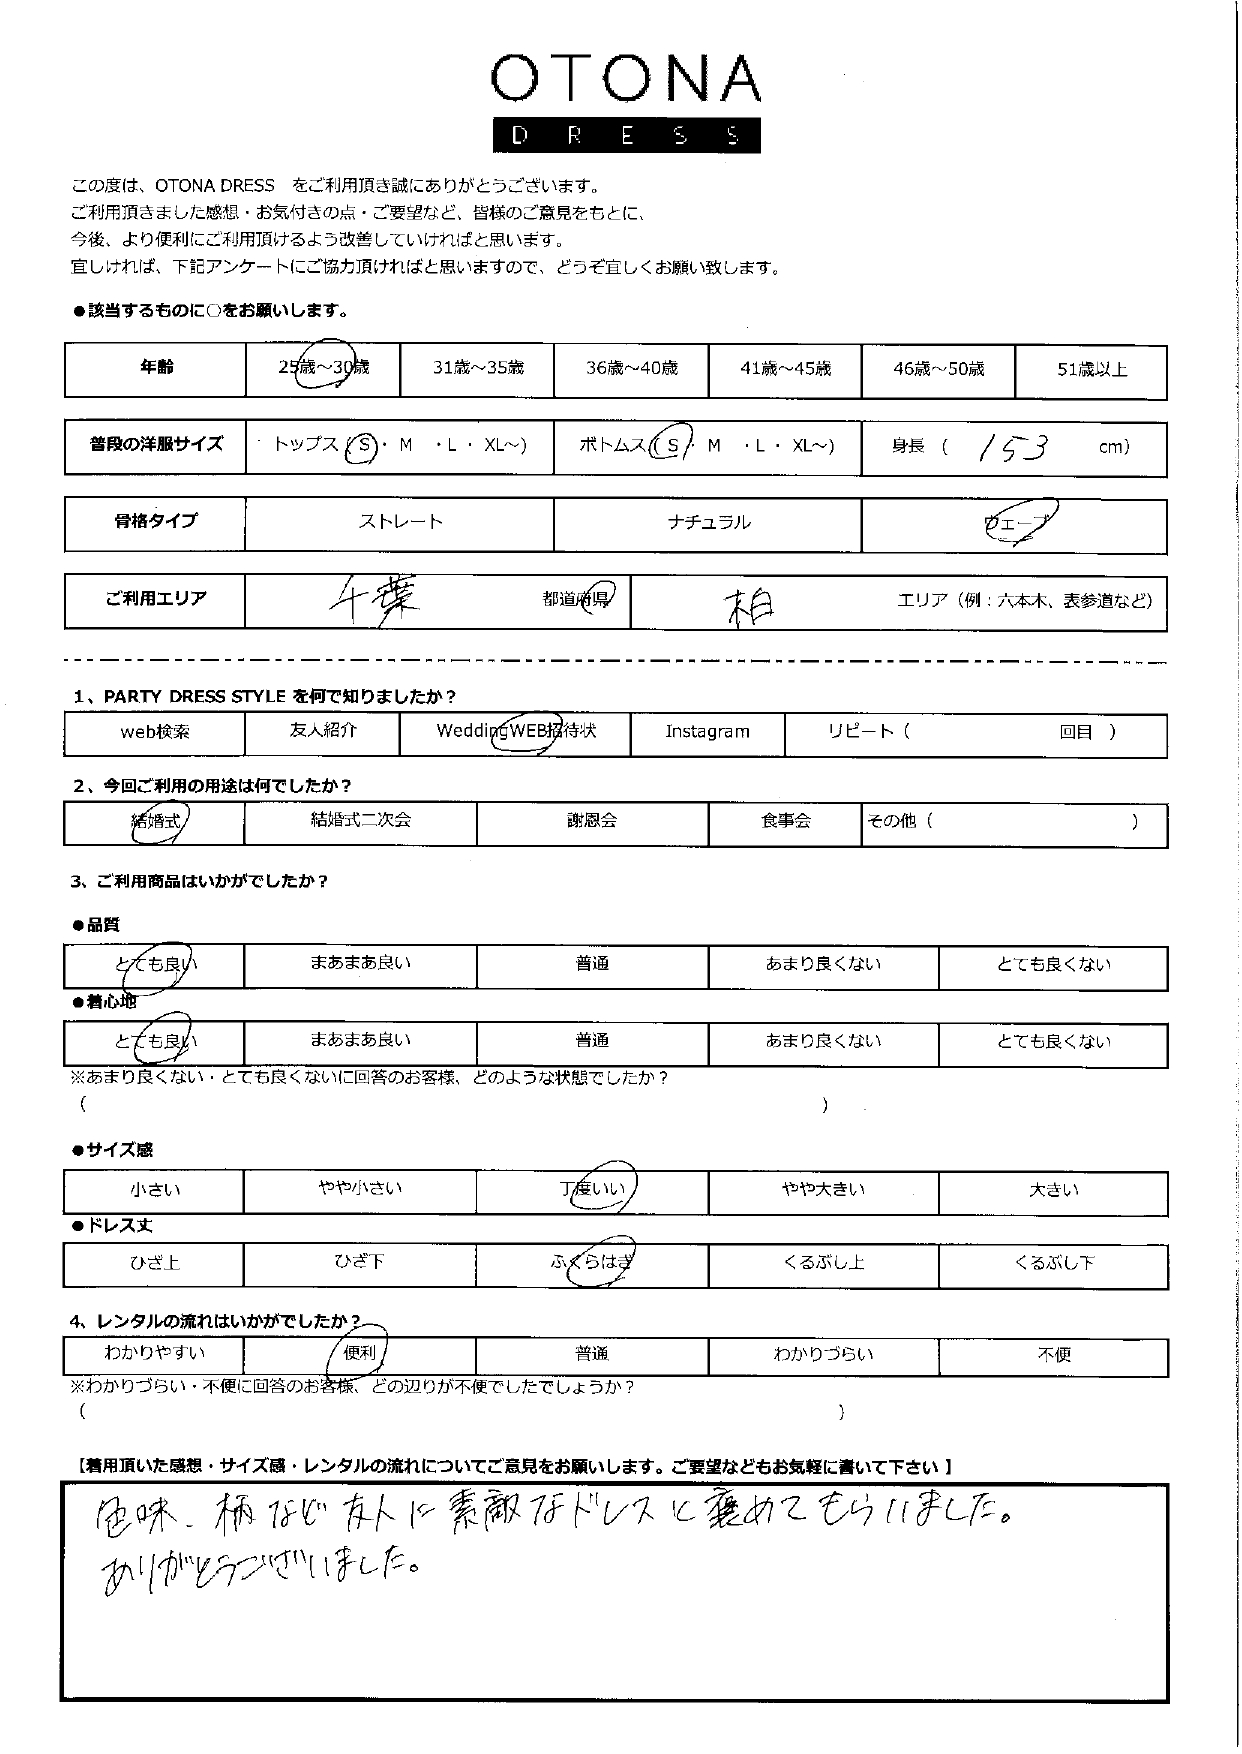 OTONA
DRESS
この度は、OTONA DRESS　をご利用頂き誠にありがとうございます。
ご利用頂きました感想・お気付きの点・ご要望など、皆様のご意見をもとに、
今後、より便利にご利用頂けるよう改善していければと思います。
宜しければ、下記アンケートにご協力頂ければと思いますので、どうぞ宜しくお願い致します。
●該当するものに○をお願いします。
年齢 25歳～30歳 31歳～35歳 36歳～40歳 41歳～45歳 46歳～50歳 51歳以上
普段の洋服サイズ トップス（S・ M ・L ・ XL～) ボトムス（S・ M ・L ・ XL～) 身長（ 153 cm）
骨格タイプ ストレート ナチュラル ウェーブ
ご利用エリア 千葉 都道府県 柏 エリア（例：六本木、表参道など）
1、PARTY DRESS STYLE を何で知りましたか？
web検索 友人紹介 WeddingWEB招待状 Instagram リピート（ 回目 ）
2、今回ご利用の用途は何でしたか？
結婚式 結婚式二次会 謝恩会 食事会 その他（ ）
3、ご利用商品はいかがでしたか？
●品質
とても良い まあまあ良い 普通 あまり良くない とても良くない
●着心地
とても良い まあまあ良い 普通 あまり良くない とても良くない
※あまり良くない・とても良くないに回答のお客様、どのような状態でしたか？
（ ）
●サイズ感
小さい やや小さい 丁度いい やや大きい 大きい
●ドレス丈
ひざ上 ひざ下 ふくらはぎ くるぶし上 くるぶし下
4、レンタルの流れはいかがでしたか？
わかりやすい 便利 普通 わかりづらい 不便
※わかりづらい・不便に回答のお客様、どの辺りが不便でしたでしょうか？
（ ）
【着用頂いた感想・サイズ感・レンタルの流れについてご意見をお願いします。ご要望などもお気軽に書いて下さい 】
色味、柄など友人に素敵なドレスと褒めてもらいました。
ありがとうございました。